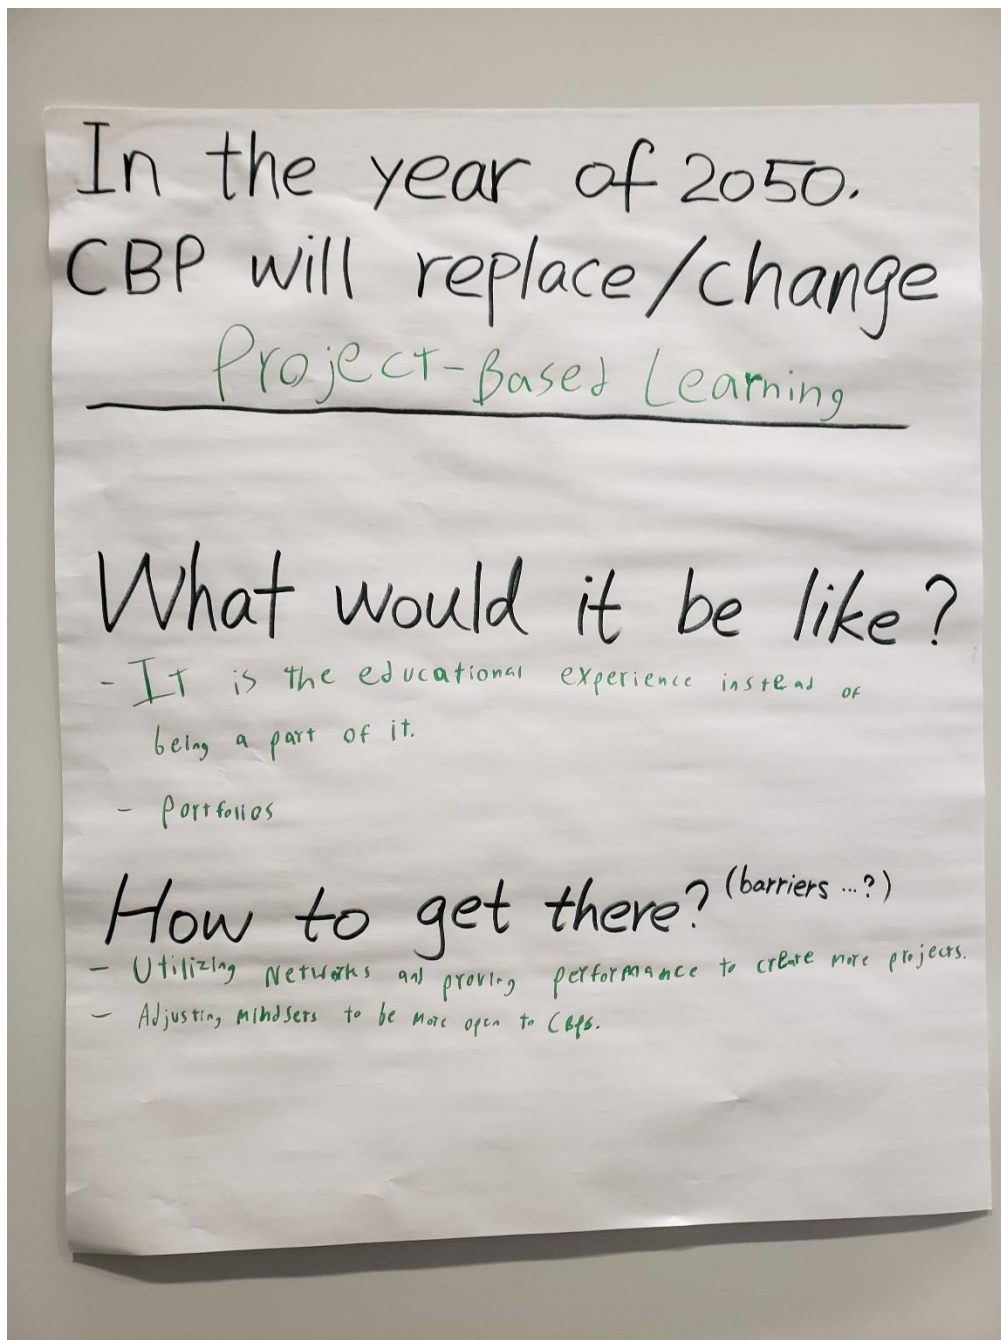 In the year of 2050.
CBP will replace/change
Project-Based Learning
What would it be like?
- It is the educational experience instead of
being a part of it.
- Portfolios
How to get there? (barriers ...?)
- Utilizing Networks and proving performance to create more projects.
- Adjusting mindsets to be more open to CBPs.